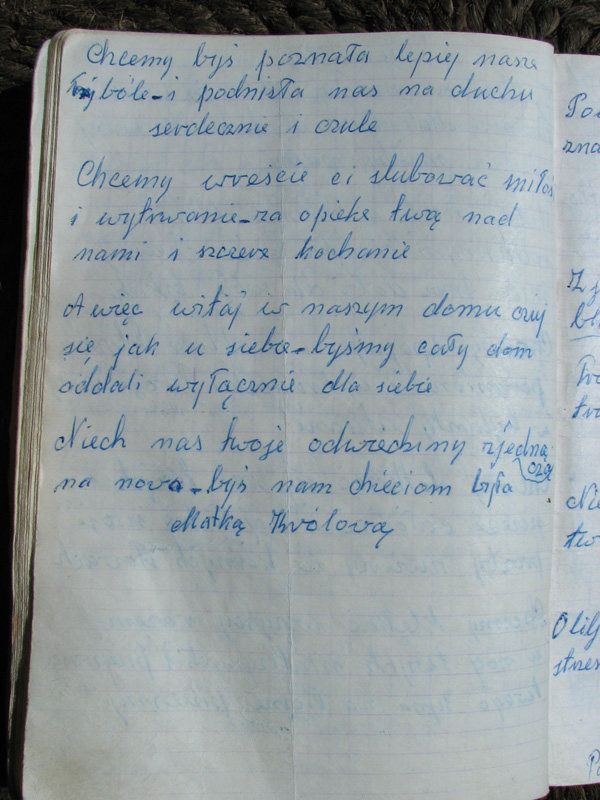 Chcemy byś poznała lepiej nasze
bóle - i podnisła nas na duchu
serdecznie i czule
Chcemy wreście ci slubować miłoś
i wytrwanie - za opieke twą nad
nami i szczere kochanie
A więc witaj w naszym domu czuj
się jak u siebie - byśmy cały dom
oddali wyłącznie dla siebie
Niech nas twoje odwiedziny zjedna
czą
na nowo - byś nam dzieciom była
Matką Królową
Pos
zna
Z j
bl
tw
Nie
tw
O lil
strze